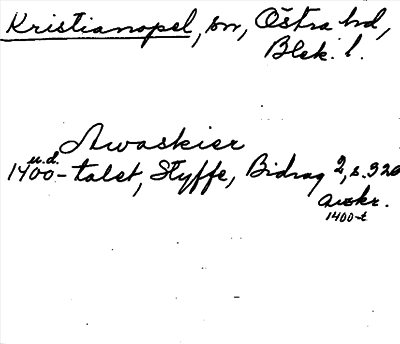 Kristianopel, sn, Östra hd,
Blek. l.
Awaskier
u.d.
1400-talet, Styffe, Bidrag 2, s. 320
avskr.
1400-t